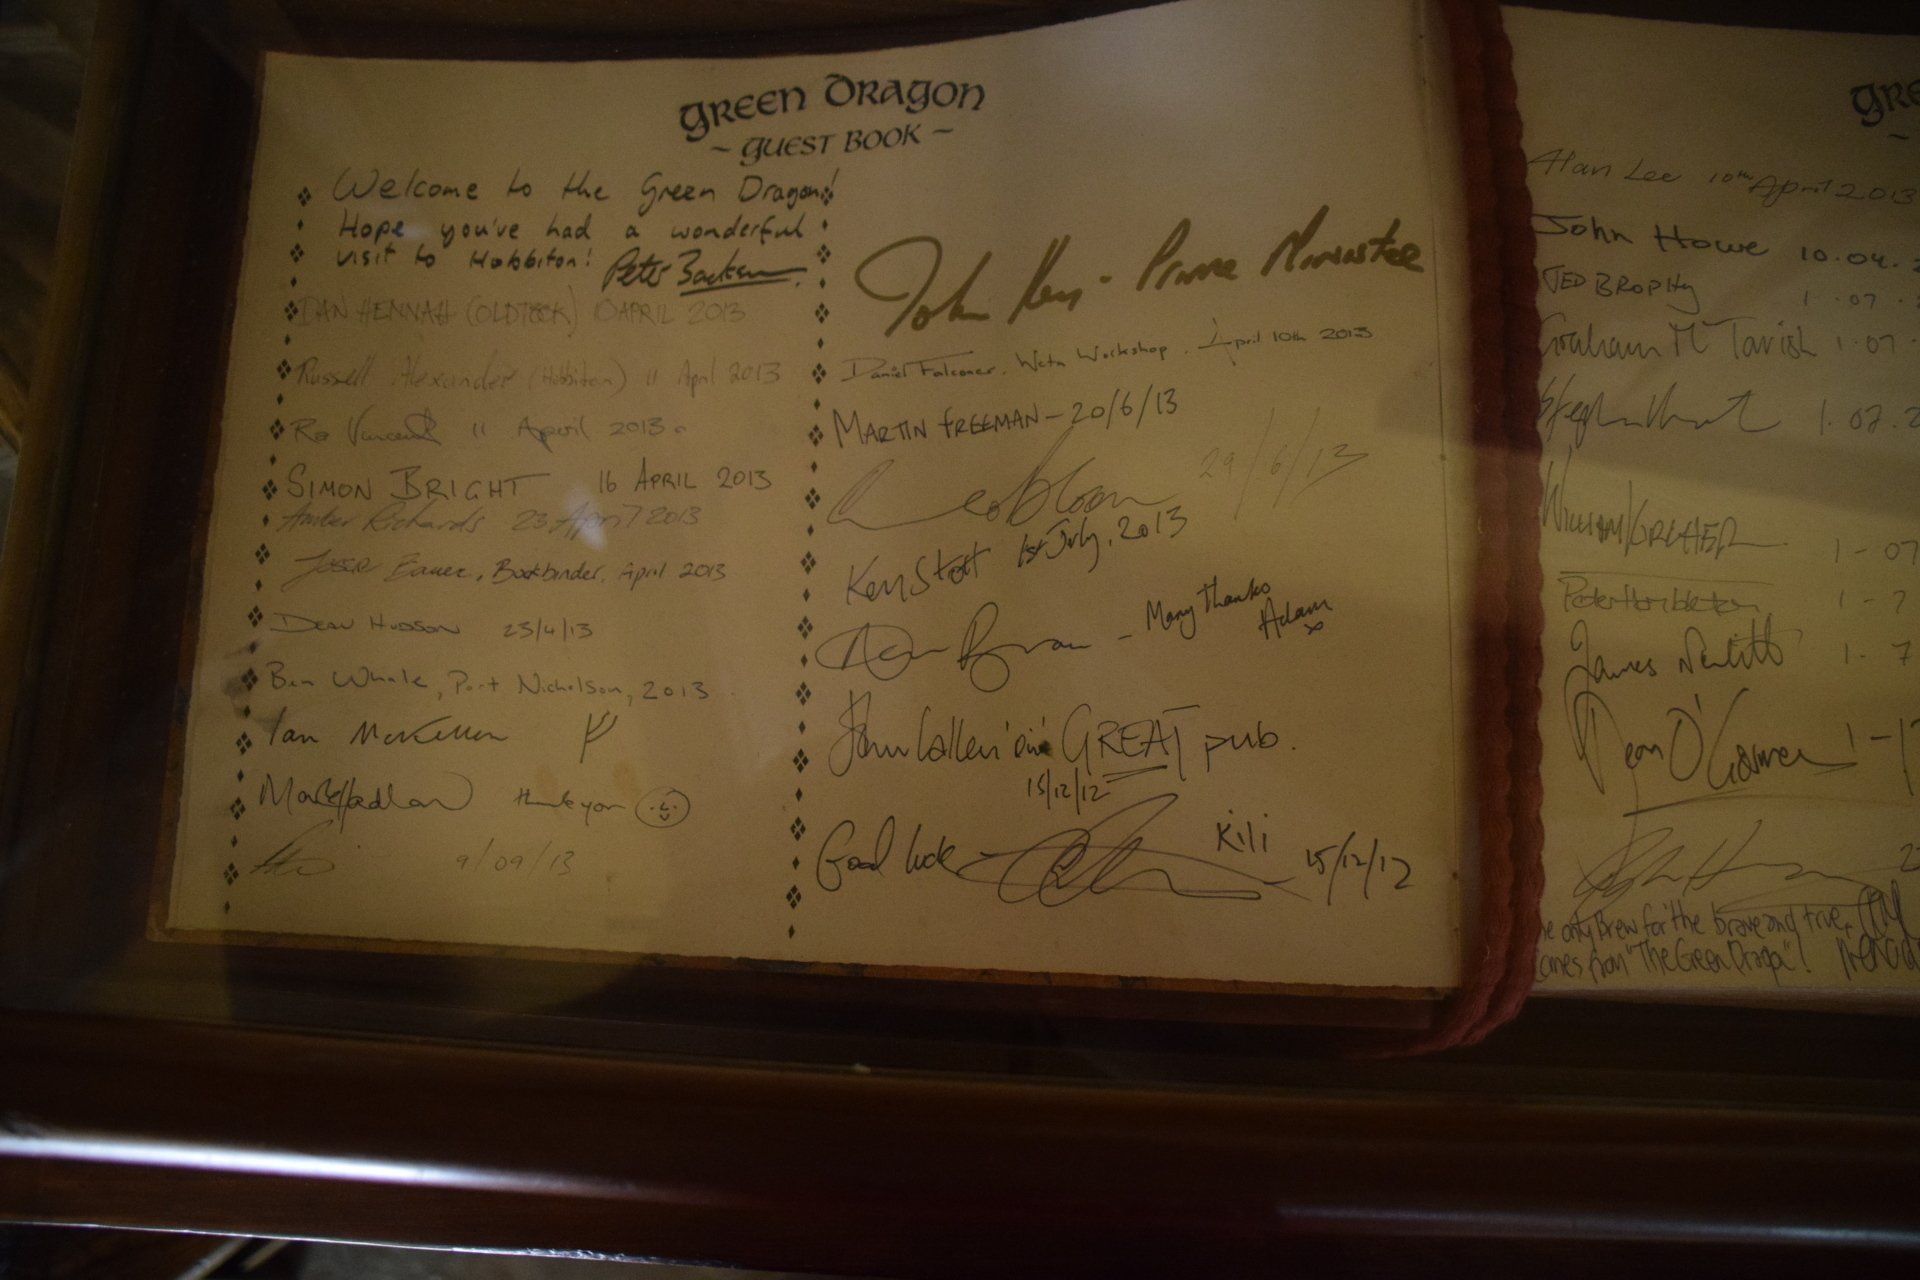 GREEN DRAGON
~ GUEST BOOK ~
Welcome to the Green Dragon!
Hope you've had a wonderful
visit to Hobbiton!
Peter
DAN HENNAH 10 APRIL 2013
Russell Alexander (Hobbiton) 11 April 2013
Ra Vincent 11 April 2013
SIMON BRIGHT 16 APRIL 2013
Amber Richards 23 April 2013
Bookbinder, April 2013
DEAN HUDSON 23/4/13
Ben Whale, Port Nicholson, 2013
Ian McKellen
Mark Hadlow thank you
9/09/13
John Key - Prime Minister
Daniel Falconer, Weta Workshop, April 10th 2013
MARTIN FREEMAN - 20/6/13
29/6/13
Ken Stott 1st July, 2013
Adam Brown - Many Thanks
Adam
x
John Callen GREAT pub.
15/12/12
Good luck - Kili 15/12/12
GRE
~
Alan Lee 10th April 2013
John Howe 10.04.
JED BROPHY 1.07.
Graham McTavish 1.07.
Stephen Hunt 1.07.2
WILLIAM KIRCHER 1-07
Peter Hambleton 1-7
James Nesbitt 1.7
Dean O'Gorman 1-
e only Brew for the brave and true,
omes from "The Green Dragon"!